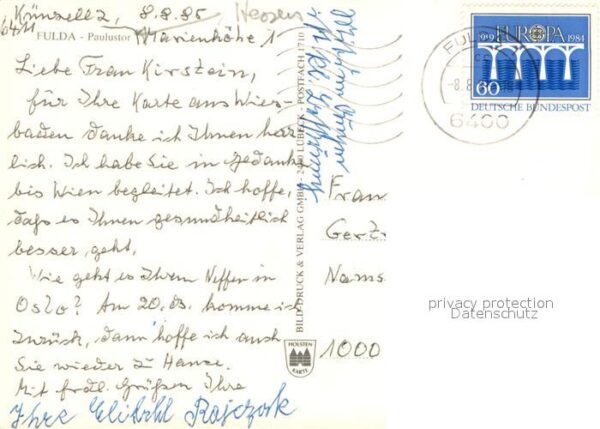 Künzell 2, 8.8.85 Hessen
6411
FULDA - Paulustor Marienhöhe 1
Liebe Frau Kirstein,
für Ihre Karte aus Wies-
baden danke ich Ihnen herz
lich. Ich habe Sie in Gedanken
bis Wien begleitet. Ich hoffe,
daß es Ihnen gesundheitlich
besser geht.
Wie geht es Ihrem Neffen in
Oslo? Am 20. ds. komme ich
zurück, dann hoffe ich auch
Sie wieder zu Hause.
Mit frdl. Grüßen Ihre
Ihre
BILD-DRUCK & VERLAG GMBH - 2400 LÜBECK - POSTFACH 1710
HOLSTEN
KARTE
FULDA
-8.8
6400
1959 EUROPA 1984
60
DEUTSCHE BUNDESPOST
Frau
Gert
Nams
1000
privacy protection
Datenschutz